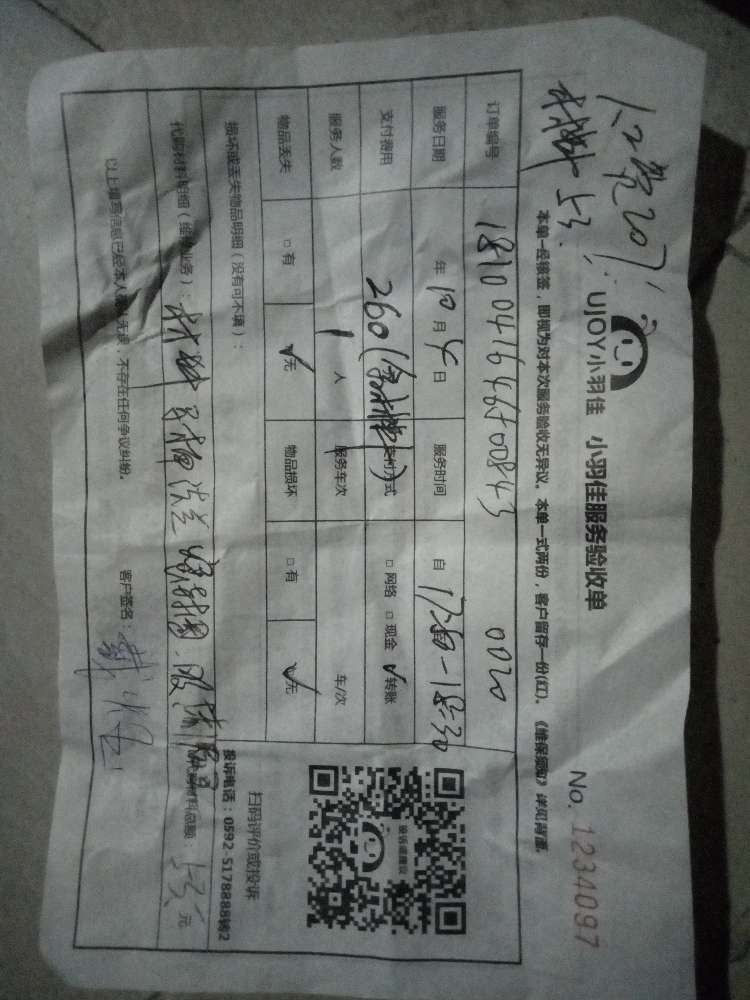 人工费207
材料53
UJOY小羽佳 小羽佳服务验收单
No. 1234097
本单一经核签，即视为对本次服务验收无异议。本单一式两份，客户留存一份(红)。《维保须知》详见背面。
订单编号 0020
服务日期 年10月4日 服务时间 自17:50-18:30
支付费用 260(含材料) 支付方式 □网络 □现金 ✓转账
服务人数 1人 服务车次 车/次
物品丢失 □有 ✓无 物品损坏 □有 ✓无
损坏或丢失物品明细（没有可不填）：
代购材料明细（维修业务）：材料 法兰 密封圈
材料总额：53元
以上填写信息已经本人 无误，不存在任何争议纠纷。
客户签名：
投诉或建议
扫码评价或投诉
投诉电话：0592-5178888转2